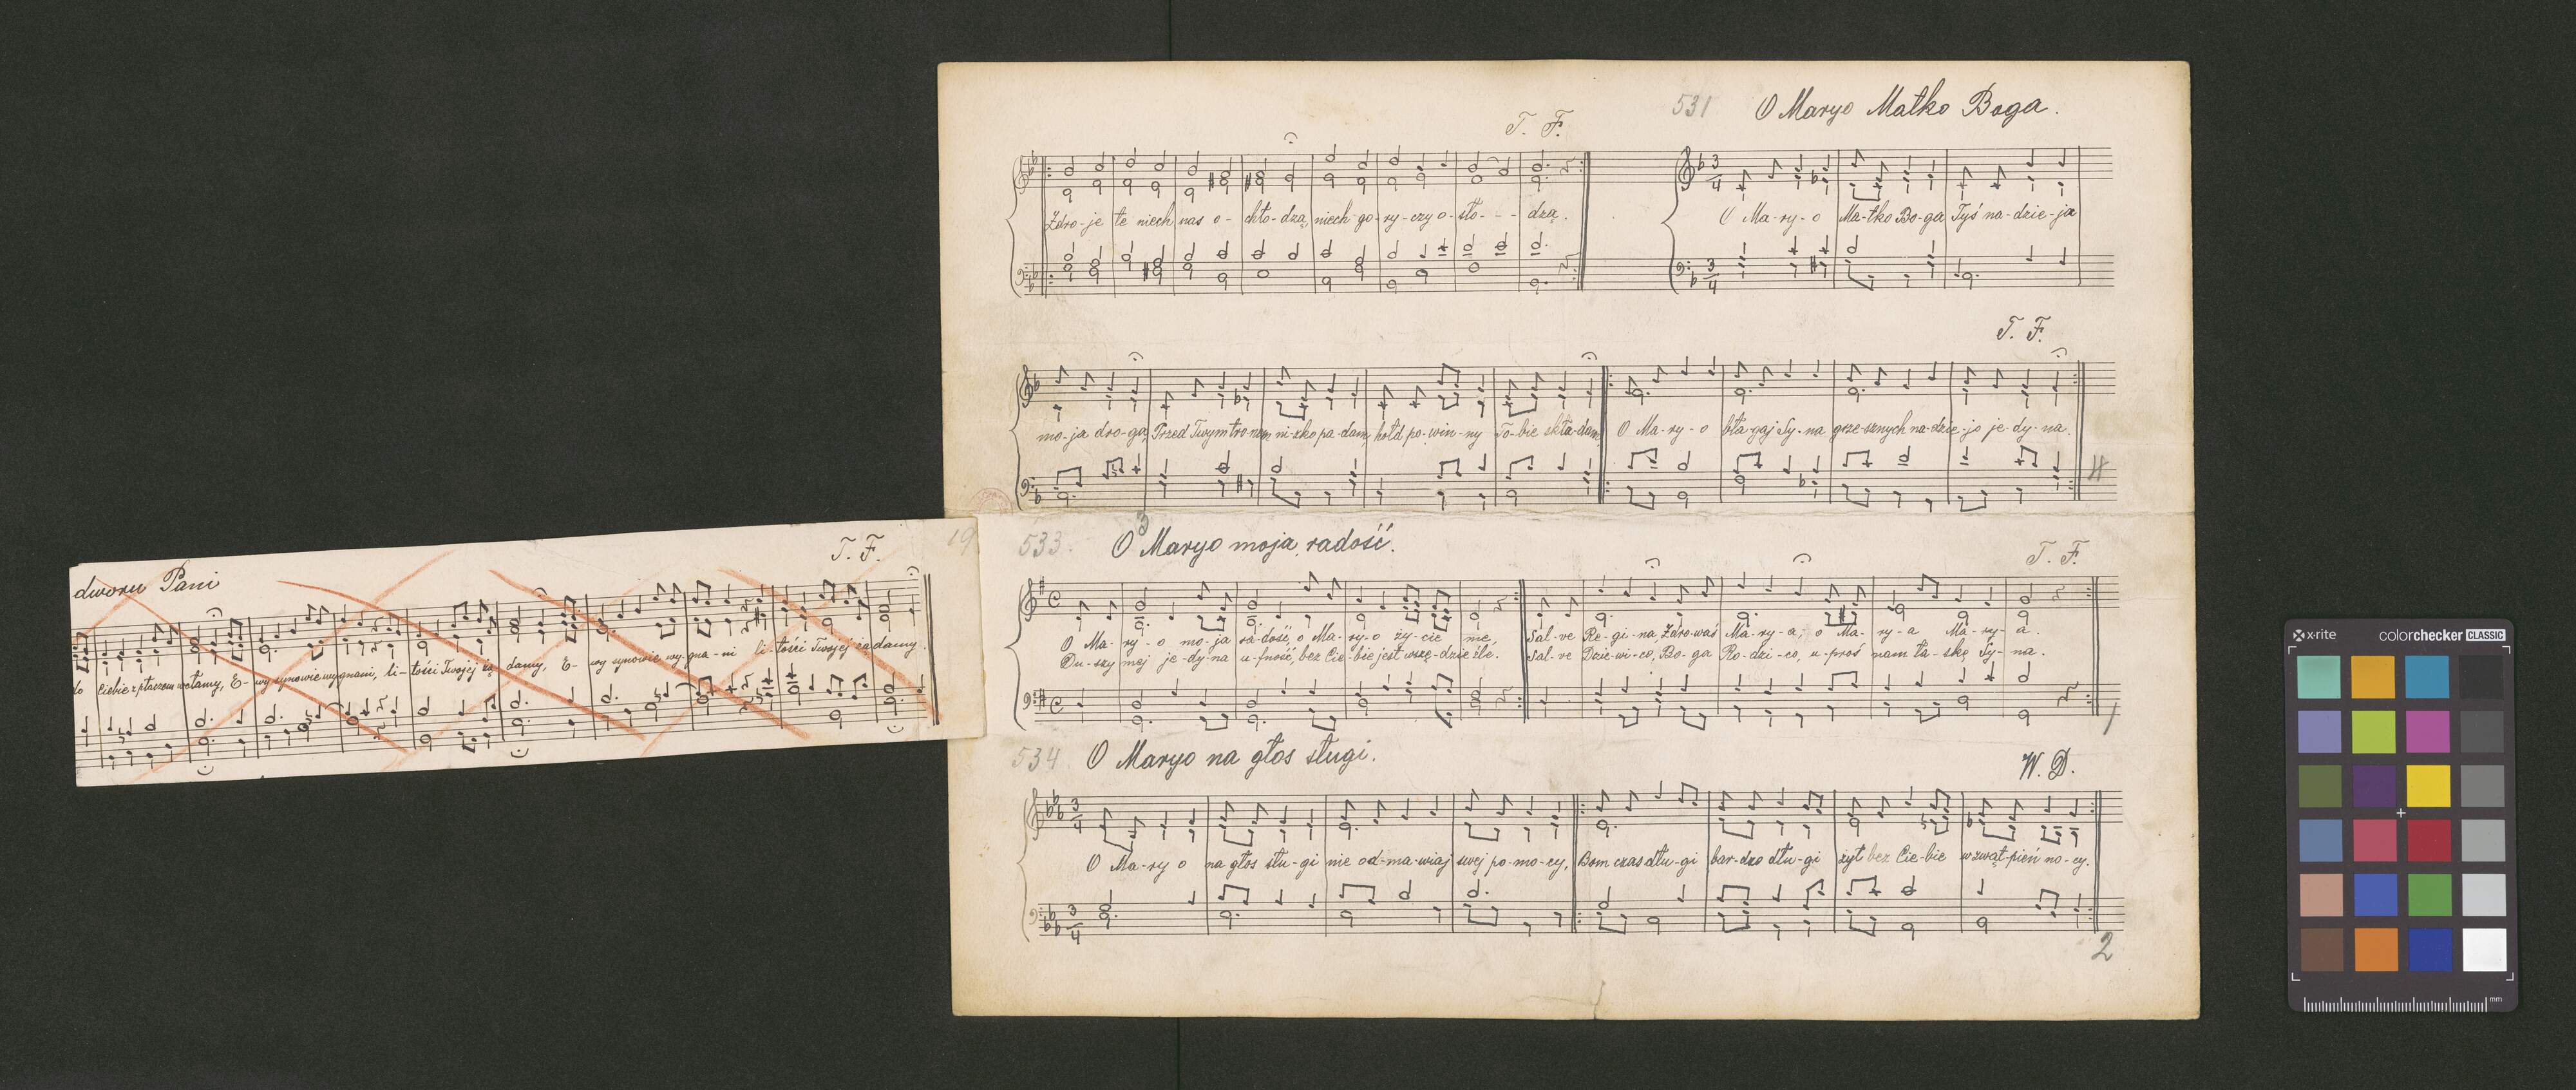 531 O Maryo Matko Boga.
T. F.
Zdro-je te niech nas o-chło-dzą, niech go-ry-czy o-sło- - -dzą.
O Ma-ry-o Ma-tko Bo-ga Tyś na-dzie-ja
T. F.
mo-ja dro-ga, Przed Twym tro-nem ni-zko pa-dam, hołd po-win-ny To-bie skła-dam, O Ma-ry-o bła-gaj Sy-na grze-sznych na-dzie-jo je-dy-na.
4
19
533. O Maryo moja radość.
3
T. F.
O Ma-ry-o mo-ja ra-dość, o Ma-ry-o ży-cie me, Sal-ve Re-gi-na, Zdro-waś Ma-ry-a, o Ma-ry-a Ma-ry-a.
Du-szy mej je-dy-na u-fność, bez Cie-bie jest wszę-dzie źle. Sal-ve Dzie-wi-co, Bo-ga Ro-dzi-co, u-proś nam ła-skę Sy-na.
1
534 O Maryo na głos sługi.
W. D.
O Ma-ry o na głos słu-gi nie od-ma-wiaj swej po-mo-cy, Bom czas dłu-gi bar-dzo dłu-gi żył bez Cie-bie w zwąt-pień no-cy.
2
dworu Pani
T. F.
do Ciebie z płaczem wołamy, E-wy synowie wy gnani, li-tości Twojej żą damy, E-wy synowie wy-gna-ni li-tości Twojej żądamy.
x-rite colorchecker CLASSIC
mm